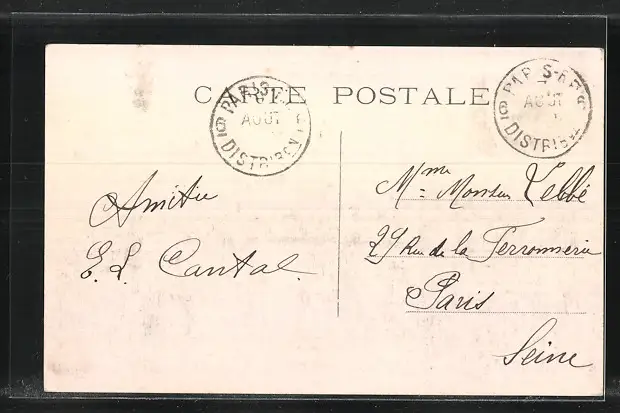 CARTE POSTALE
PARIS
AOUT
DISTRIBON
PARIS
AOUT
DISTRIB
Amitié
E. L. Cantal.
Mme = Monsieur Lebbé
29 Rue de la Ferronnerie
Paris
Seine